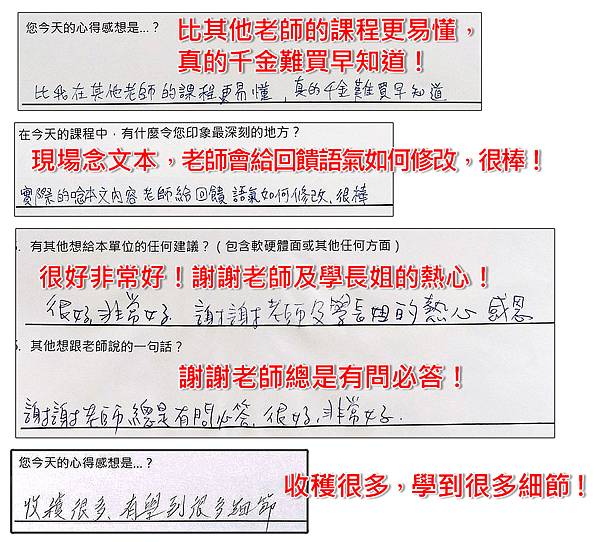 您今天的心得感想是...？
比其他老師的課程更易懂，
真的千金難買早知道！
比我在其他老師的課程更易懂，真的千金難買早知道
在今天的課程中，有什麼令您印象最深刻的地方？
現場念文本，老師會給回饋語氣如何修改，很棒！
實際的唸本文內容 老師給回饋 語氣如何修改、很棒
. 有其他想給本單位的任何建議？（包含軟硬體面或其他任何方面）
很好非常好！謝謝老師及學長姐的熱心！
很好,非常好. 謝謝老師及學長姐的熱心 感恩
. 其他想跟老師說的一句話？
謝謝老師總是有問必答！
謝謝老師總是有問必答,很好,非常好.
您今天的心得感想是...？
收穫很多，學到很多細節！
收穫很多、有學到很多細節